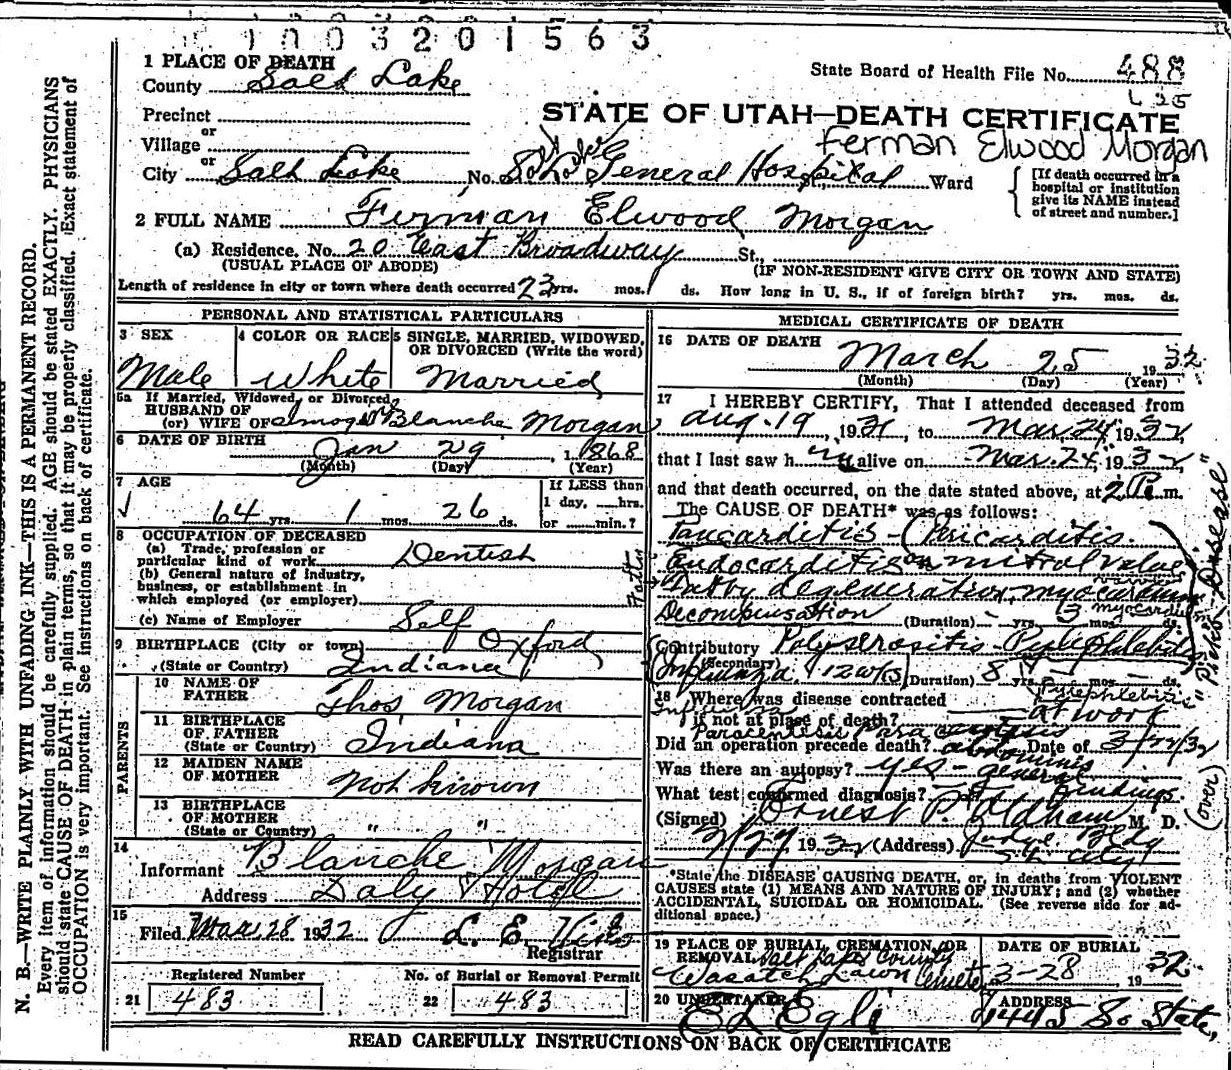 1003201563
1 PLACE OF DEATH
County Salt Lake
State Board of Health File No. 488
Precinct
or
Village
or
City Salt Lake No. General Hospital Ward
STATE OF UTAH—DEATH CERTIFICATE
Ferman Elwood Morgan
[If death occurred in a
hospital or institution
give its NAME instead
of street and number.]
2 FULL NAME Ferman Elwood Morgan
(a) Residence. No. 20 East Broadway St.,
(USUAL PLACE OF ABODE) (IF NON-RESIDENT GIVE CITY OR TOWN AND STATE)
Length of residence in city or town where death occurred 23 yrs. mos. ds. How long in U. S., if of foreign birth? yrs. mos. ds.
PERSONAL AND STATISTICAL PARTICULARS
3 SEX
Male
4 COLOR OR RACE
White
5 SINGLE, MARRIED, WIDOWED,
OR DIVORCED (Write the word)
Married
5a If Married, Widowed, or Divorced
HUSBAND OF
(or) WIFE OF Blanche Morgan
6 DATE OF BIRTH
Jan 29, 1868
(Month) (Day) (Year)
7 AGE
64 yrs. 1 mos. 26 ds.
If LESS than
1 day, hrs.
or min.?
8 OCCUPATION OF DECEASED
(a) Trade, profession or
particular kind of work Dentist
(b) General nature of industry,
business, or establishment in
which employed (or employer)
(c) Name of Employer Self
9 BIRTHPLACE (City or town) Oxford
(State or Country) Indiana
PARENTS
10 NAME OF
FATHER Thos Morgan
11 BIRTHPLACE
OF FATHER
(State or Country) Indiana
12 MAIDEN NAME
OF MOTHER Not known
13 BIRTHPLACE
OF MOTHER
(State or Country) " "
14
Informant Blanche Morgan
Address Daly Hotel
15
Filed Mar 28 1932 L. E.
Registrar
Registered Number
21 483
No. of Burial or Removal Permit
22 483
MEDICAL CERTIFICATE OF DEATH
16 DATE OF DEATH
March 25 1932
(Month) (Day) (Year)
17 I HEREBY CERTIFY, That I attended deceased from
Aug. 19, 1931, to Mar. 24, 1932,
that I last saw h im alive on Mar. 24, 1932
and that death occurred, on the date stated above, at 2 P. m.
The CAUSE OF DEATH* was as follows:
Pancarditis - (Pericarditis
Endocarditis mitral valve
Fatty degeneration, myocardium
Decompensation (Duration) yrs. 3 mos. ds.
Contributory Polyserositis - Pylephlebitis
(Secondary)
Influenza. 12 wks (Duration) 8 yrs. mos. ds.
18 Where was disease contracted
if not at place of death? at work
Pylephlebitis
Paracentesis
Did an operation precede death? abdominis Date of
Was there an autopsy? yes - general
What test confirmed diagnosis? findings.
(Signed) Ernest P. Oldham M. D.
1932 (Address) Judge Bldg
S. L. City
*State the DISEASE CAUSING DEATH, or, in deaths from VIOLENT
CAUSES state (1) MEANS AND NATURE OF INJURY; and (2) whether
ACCIDENTAL, SUICIDAL OR HOMICIDAL. (See reverse side for ad-
ditional space.)
19 PLACE OF BURIAL CREMATION, OR
REMOVAL Salt Lake County
Wasatch Lawn Cemetery
DATE OF BURIAL
3-28 1932
20 UNDERTAKER
E L Egli
ADDRESS
1445 So State,
READ CAREFULLY INSTRUCTIONS ON BACK OF CERTIFICATE
"Pick's Disease"
(over)
N. B.—WRITE PLAINLY WITH UNFADING INK—THIS IS A PERMANENT RECORD.
Every item of information should be carefully supplied. AGE should be stated EXACTLY. PHYSICIANS
should state CAUSE OF DEATH in plain terms, so that it may be properly classified. Exact statement of
OCCUPATION is very important. See instructions on back of certificate.